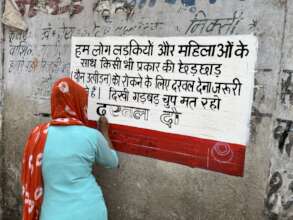 हम लोग लडकियों और महिलाओं के
साथ किसी भी प्रकार की छेड़छाड़
(यौन उत्पीडन) को रोकने के लिए दखल देना जरूरी
है । दिखी गड़बड़ चुप मत रहो
दो